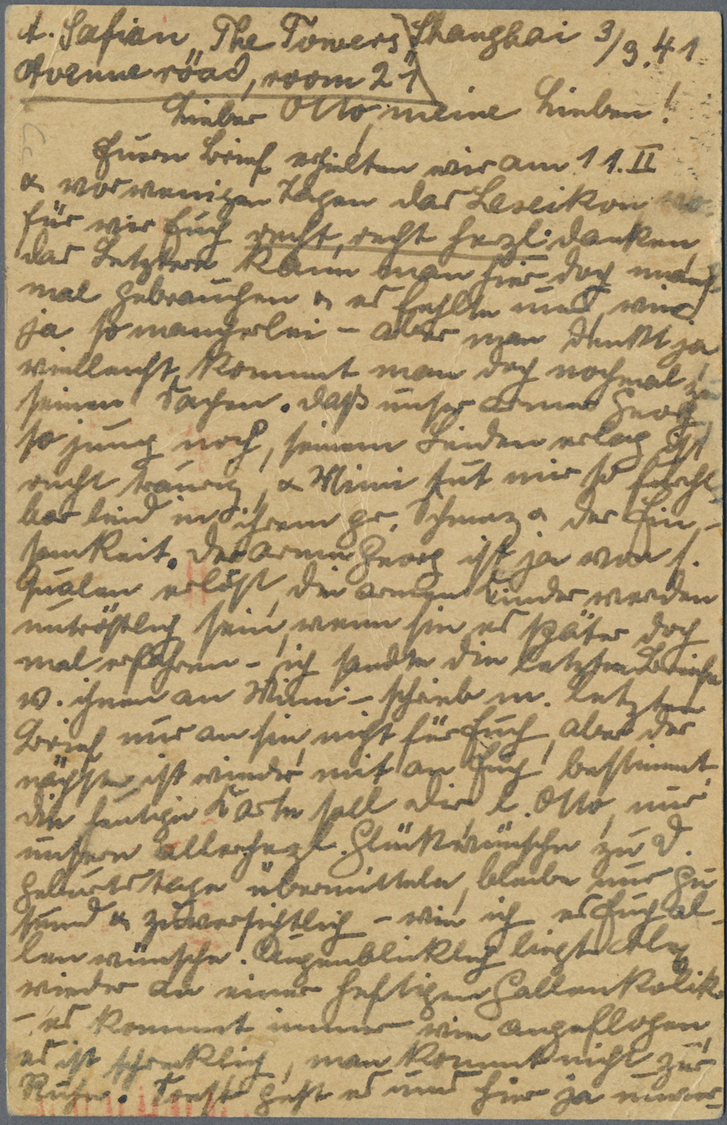 A. Safian "The Towers" Shanghai 3/3.41
Avenue road, room 21
Lieber Otto, meine Lieben!
Euern Brief erhielten wir am 11.II
& vor wenigen Tagen das Lexikon wo-
für wir Euch recht, recht herzl. danken,
das Letztere kann man hier doch manch-
mal gebrauchen & es fehlte uns, wie
ja so mancherlei – aber man denkt ja
vielleicht kommt man doch nochmal zu
seinen Sachen. Daß unser armer Georg,
so jung noch, seinem Leiden erlag ist
recht traurig & Mimi tut mir so furcht-
bar leid in ihrem gr. Schmerz & der Ein-
samkeit. Der arme Georg ist ja von s.
Qualen erlöst, die armen Kinder werden
untröstlich sein, wenn sie es später doch
mal erfahren – ich sandte die letzten Briefe
v. ihnen an Mimi – schrieb m. letzten
Brief nur an sie, nicht für Euch, aber der
nächste ist wieder mit an Euch bestimmt,
die heutige Karte soll Dir l. Otto, nur
unsere allerherzl. Glückwünsche zu D.
Geburtstage übermitteln, bleibe nur ge-
sund & zuversichtlich – wie ich es Euch al-
len wünsche. Augenblicklich liegt Alex
wieder an einer heftigen Gallenkolik
– es kommt immer wie angeflogen,
es ist schrecklich, man kommt nicht zur
Ruhe. Sonst geht es uns hier ja